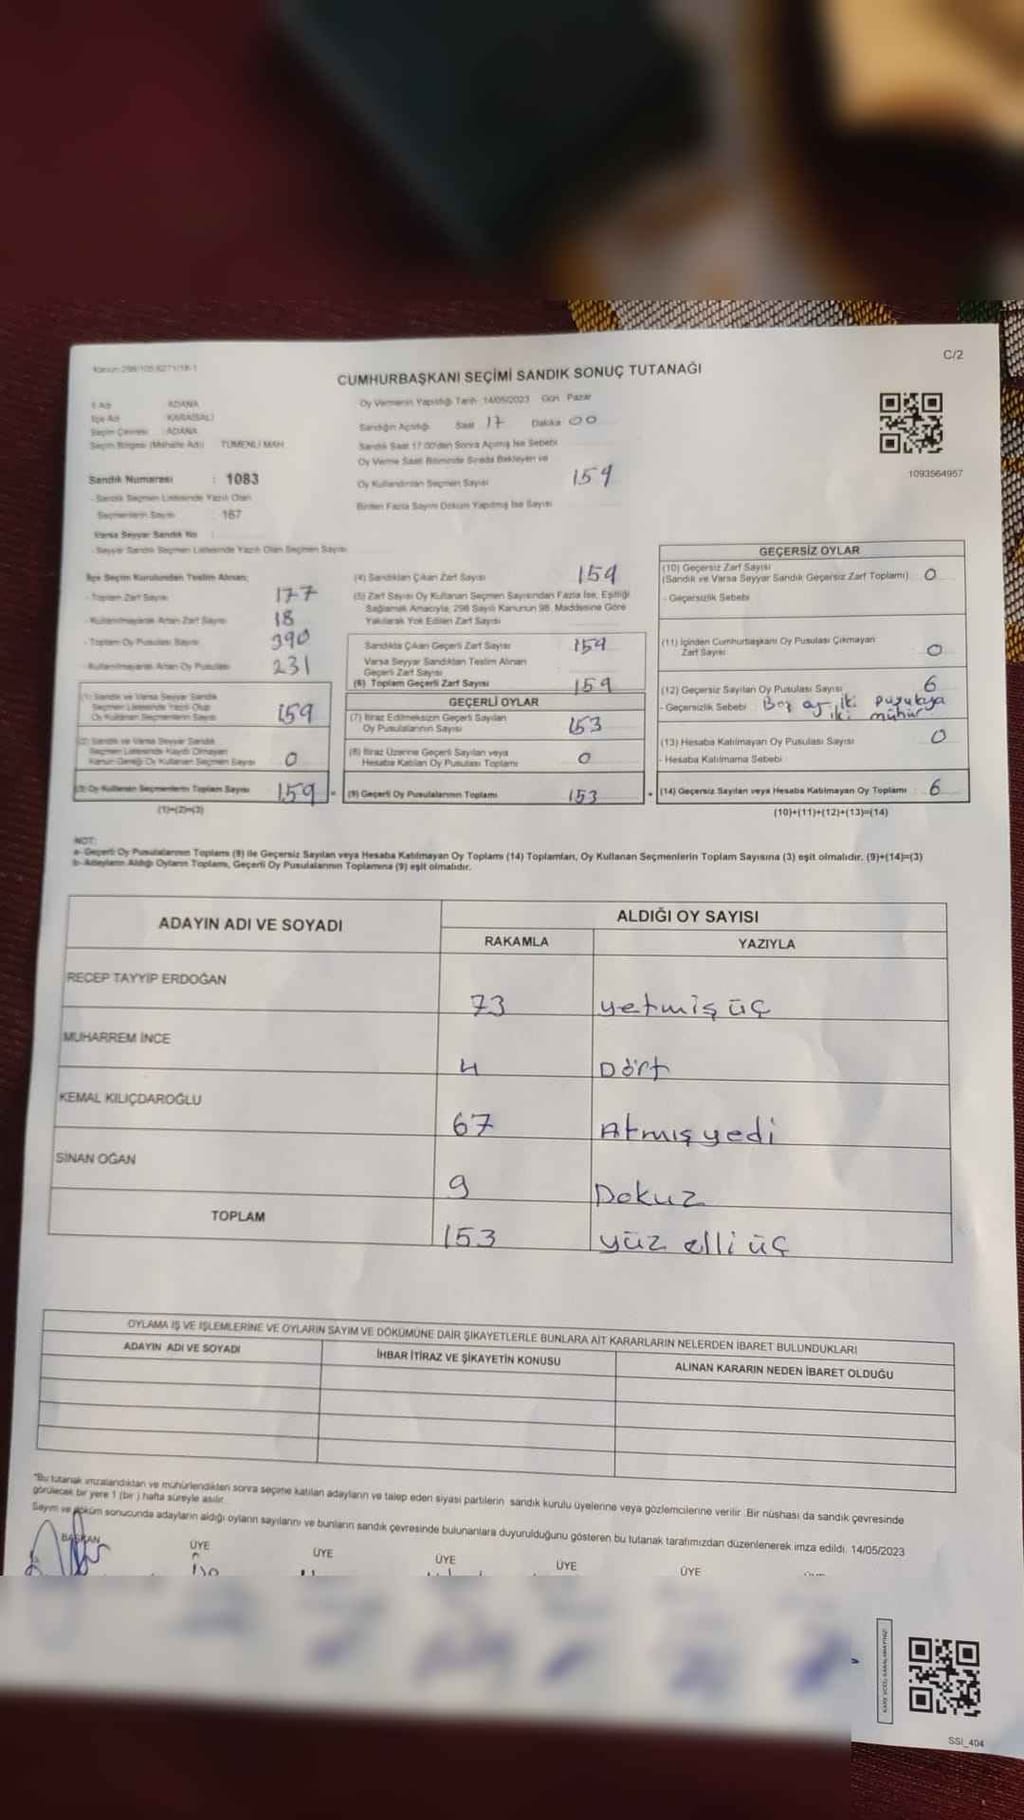 C/2
CUMHURBAŞKANI SEÇİMİ SANDIK SONUÇ TUTANAĞI
İl Adı ADANA
İlçe Adı KARAİSALI
Seçim Çevresi : ADANA
Seçim Bölgesi (Mahalle Adı) TÜMENLİ MAH
Sandık Numarası : 1083
- Sandık Seçmen Listesinde Yazılı Olan
Seçmenlerin Sayısı : 167
Varsa Seyyar Sandık No :
- Seyyar Sandık Seçmen Listesinde Yazılı Olan Seçmen Sayısı
Oy Vermenin Yapıldığı Tarih 14/05/2023 Gün Pazar
Sandığın Açıldığı Saat 17 Dakika 00
Sandık Saat 17.00'den Sonra Açılmış İse Sebebi
Oy Verme Saati Bitiminde Sırada Bekleyen ve
Oy Kullandırılan Seçmen Sayısı 159
Birden Fazla Sayım Döküm Yapılmış İse Sayısı
1093564957
İlçe Seçim Kurulundan Teslim Alınan;
- Toplam Zarf Sayısı 177
- Kullanılmayarak Artan Zarf Sayısı 18
- Toplam Oy Pusulası Sayısı 390
- Kullanılmayarak Artan Oy Pusulası 231
(1) Sandık ve Varsa Seyyar Sandık
Seçmen Listesinde Yazılı Olup
Oy Kullanan Seçmenlerin Sayısı 159
(2) Sandık ve Varsa Seyyar Sandık
Seçmen Listesinde Kaydı Olmayan
Kanun Gereği Oy Kullanan Seçmen Sayısı 0
(3) Oy Kullanan Seçmenlerin Toplam Sayısı 159
(1)+(2)=(3)
(4) Sandıktan Çıkan Zarf Sayısı 159
(5) Zarf Sayısı Oy Kullanan Seçmen Sayısından Fazla İse, Eşitliği
Sağlamak Amacıyla, 298 Sayılı Kanunun 98. Maddesine Göre
Yakılarak Yok Edilen Zarf Sayısı
Sandıkta Çıkan Geçerli Zarf Sayısı 159
Varsa Seyyar Sandıktan Teslim Alınan
Geçerli Zarf Sayısı
(6) Toplam Geçerli Zarf Sayısı 159
GEÇERLİ OYLAR
(7) İtiraz Edilmeksizin Geçerli Sayılan
Oy Pusulalarının Sayısı 153
(8) İtiraz Üzerine Geçerli Sayılan veya
Hesaba Katılan Oy Pusulası Toplamı 0
(9) Geçerli Oy Pusulalarının Toplamı 153
GEÇERSİZ OYLAR
(10) Geçersiz Zarf Sayısı
(Sandık ve Varsa Seyyar Sandık Geçersiz Zarf Toplamı) 0
- Geçersizlik Sebebi
(11) İçinden Cumhurbaşkanı Oy Pusulası Çıkmayan
Zarf Sayısı 0
(12) Geçersiz Sayılan Oy Pusulası Sayısı 6
- Geçersizlik Sebebi Boş oy iki pusulaya
iki mühür
(13) Hesaba Katılmayan Oy Pusulası Sayısı 0
- Hesaba Katılmama Sebebi
(14) Geçersiz Sayılan veya Hesaba Katılmayan Oy Toplamı 6
(10)+(11)+(12)+(13)=(14)
NOT:
a- Geçerli Oy Pusulalarının Toplamı (9) ile Geçersiz Sayılan veya Hesaba Katılmayan Oy Toplamı (14) Toplamları, Oy Kullanan Seçmenlerin Toplam Sayısına (3) eşit olmalıdır. (9)+(14)=(3)
b- Adayların Aldığı Oyların Toplamı, Geçerli Oy Pusulalarının Toplamına (9) eşit olmalıdır.
ADAYIN ADI VE SOYADI
ALDIĞI OY SAYISI
RAKAMLA YAZIYLA
RECEP TAYYİP ERDOĞAN 73 yetmiş üç
MUHARREM İNCE 4 Dört
KEMAL KILIÇDAROĞLU 67 Atmış yedi
SİNAN OĞAN 9 Dokuz
TOPLAM 153 yüz elli üç
OYLAMA İŞ VE İŞLEMLERİNE VE OYLARIN SAYIM VE DÖKÜMÜNE DAİR ŞİKAYETLERLE BUNLARA AİT KARARLARIN NELERDEN İBARET BULUNDUKLARI
ADAYIN ADI VE SOYADI İHBAR İTİRAZ VE ŞİKAYETİN KONUSU ALINAN KARARIN NEDEN İBARET OLDUĞU
"Bu tutanak imzalandıktan ve mühürlendikten sonra seçime katılan adayların ve talep eden siyasi partilerin sandık kurulu üyelerine veya gözlemcilerine verilir. Bir nüshası da sandık çevresinde
görülecek bir yere 1 (bir) hafta süreyle asılır.
Sayım ve döküm sonucunda adayların aldığı oyların sayılarını ve bunların sandık çevresinde bulunanlara duyurulduğunu gösteren bu tutanak tarafımızdan düzenlenerek imza edildi. 14/05/2023
BAŞKAN ÜYE ÜYE ÜYE ÜYE ÜYE
SSI_404